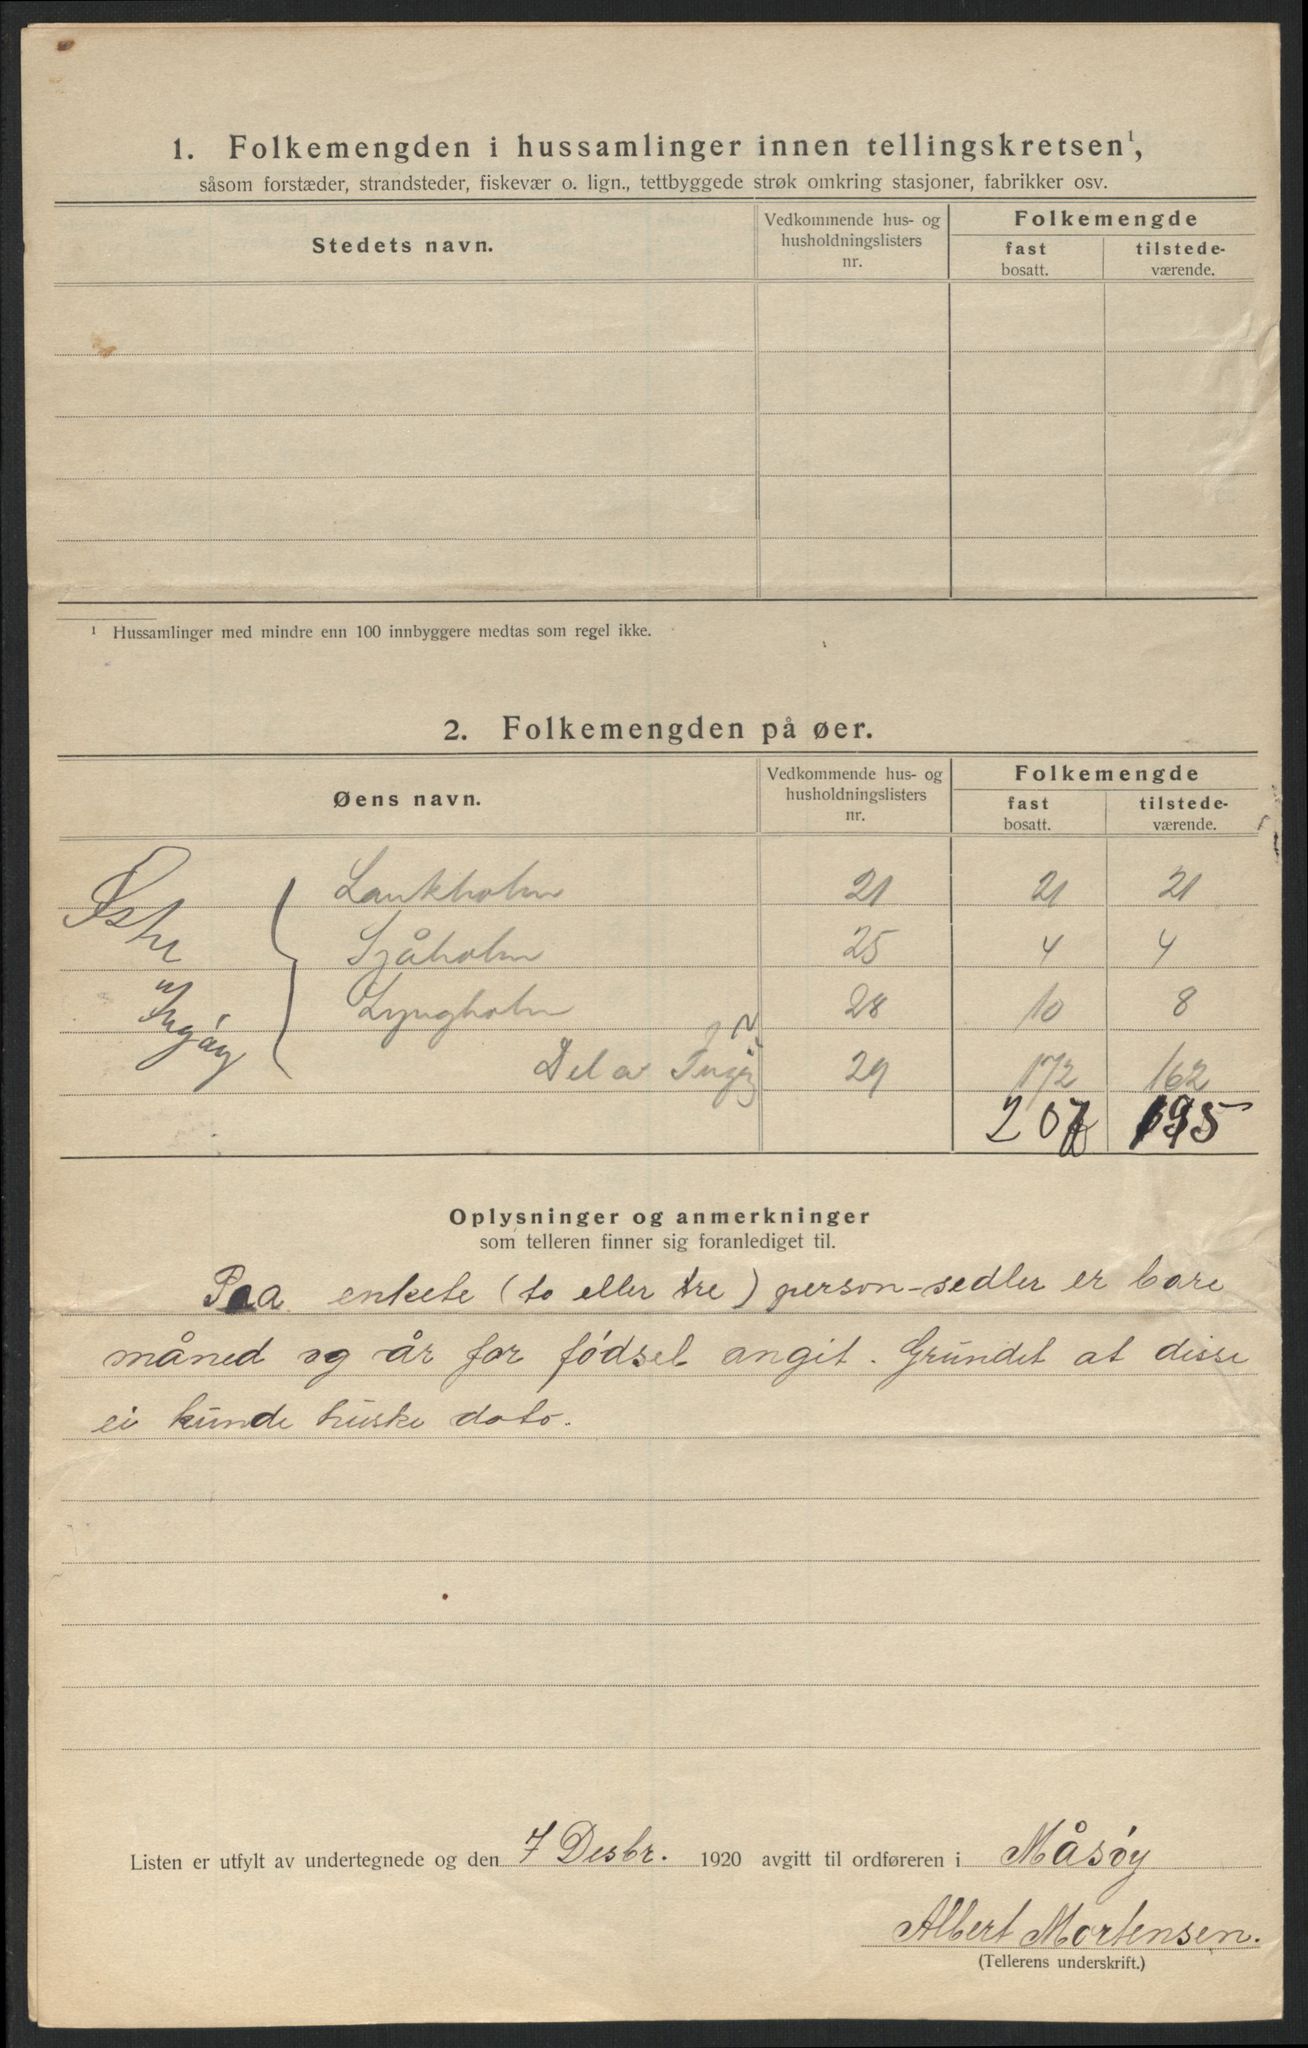 1. Folkemengden i hussamlinger innen tellingskretsen¹,
såsom forstæder, strandsteder, fiskevær o. lign., tettbyggede strøk omkring stasjoner, fabrikker osv.
Stedets navn. Vedkommende hus- og husholdningslisters nr. Folkemengde
fast bosatt. tilstede-værende.
¹ Hussamlinger med mindre enn 100 innbyggere medtas som regel ikke.
2. Folkemengden på øer.
Øens navn. Vedkommende hus- og husholdningslisters nr. Folkemengde
fast bosatt. tilstede-værende.
Lankholm 21 21 21
Sjåholm 25 4 4
Lyngholm 28 10 8
Ingöy
Del a Ingöy 29 172 162
207 195
Oplysninger og anmerkninger
som telleren finner sig foranlediget til.
Paa enkete (to eller tre) person-sedler er bare
måned og år for fødsel angit. Grundet at disse
ei kunde huske dato.
Listen er utfylt av undertegnede og den 7 Desbr. 1920 avgitt til ordføreren i Måsøy
Albert Mortensen.
(Tellerens underskrift.)